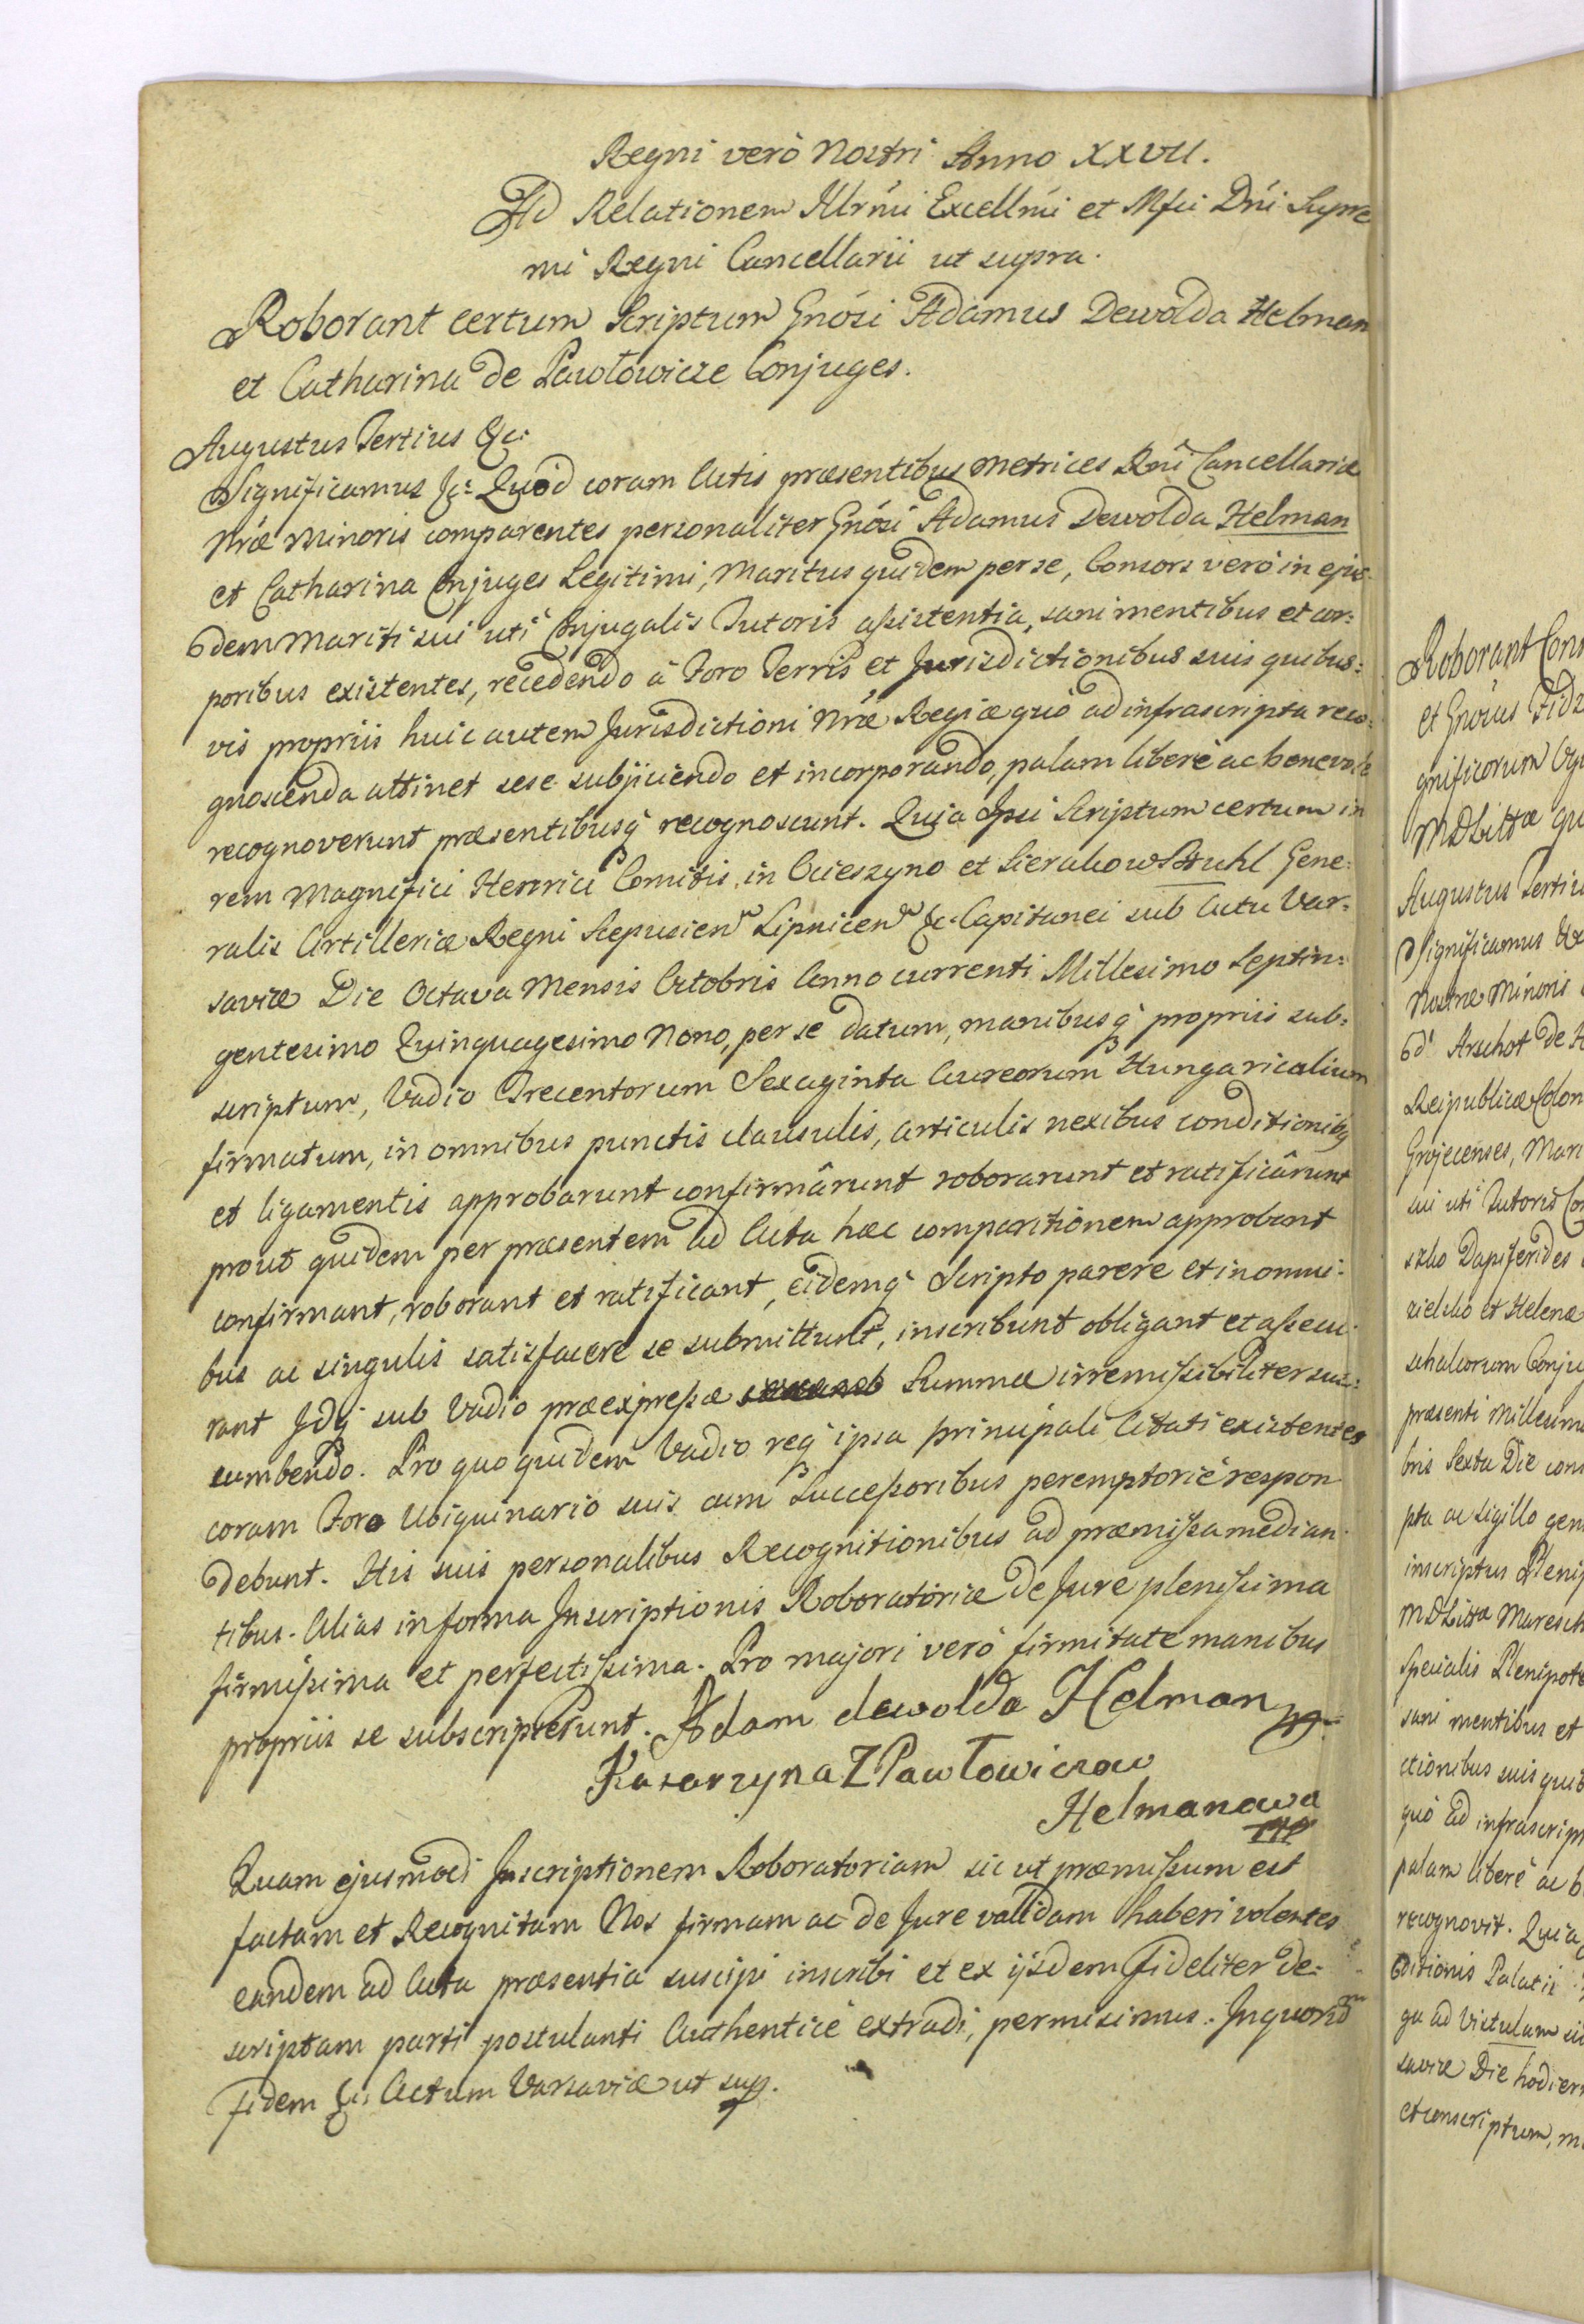 Regni verò Nostri Anno XXVII.
Ad Relationem Illrmi Excellmi et Mfci Dni Supre
mi Regni Cancellarii ut supra.
Roborant certum Scriptum Gnosi Adamus Dewolda Helman
et Catharina de Pawłowicze Conjuges.
Augustus Tertius &c:
Significamus &c: Quod coram Actis præsentibus Metrices Rni Cancellariæ
Nræ Minoris comparentes personaliter Gnosi Adamus Dewolda Helman
et Catharina Conjuges Legitimi, Maritus quidem per se, Consors verò in ejus-
dem Mariti sui uti Conjugalis Tutoris assistentia, sani mentibus et cor:
poribus existentes, recedendo à Foro Terris et Jurisdictionibus suis quibus:
vis propriis huic autem Jurisdictioni Nræ Regiæ quò ad infrascripta reco:
gnoscenda attinet sese subjiciendo et incorporando, palam liberè ac benevole
recognoverunt præsentibusq recognoscunt. Quia Ipsi Scriptum certum in
rem Magnifici Henrici Comitis in Cieszyno et Sierakow Bruhl Gene:
ralis Artilleriæ Regni Scepusien Lipnicen &c. Capitanei sub Actu Var:
saviæ Die Octava Mensis Octobris Anno currenti Millesimo Septin:
gentesimo Quinquagesimo Nono, per se datum, manibusq propriis sub:
scriptum, Vadio Trecentorum Sexaginta Aureorum Hungaricalium
firmatum, in omnibus punctis clausulis, articulis nexibus conditionibq
et ligamentis approbarunt confirmârunt roborarunt et ratificârunt
prout quidem per præsentem ad Acta hæc comparitionem approbant
confirmant, roborant et ratificant, eidemq Scripto parere et in omni:
bus ac singulis satisfacere se submittunt, inscribunt obligant et assecu:
rant Idq sub Vadio præexpressæ Summæ irremissibiliter suc:
cumbendo. Pro quo quidem Vadio req ipsa principali Citati existentes
coram Foro Ubiquinario suis cum Successoribus peremptoriè respon
debunt. His suis personalibus Recognitionibus ad præmissa median:
tibus. Alias in forma Inscriptionis Roboratoriæ de Jure plenissima
firmissima et perfectissima. Pro majori verò firmitate manibus
propriis se subscripserunt. Adam dewolda Helman mp
Katarzyna Z Pawłowiczow
Helmanowa
mp
Quam ejusmodi Inscriptionem Roboratoriam sic ut præmissum est
factam et Recognitam Nos firmam ac de Jure validam haberi volentes
eandem ad Acta præsentia suscipi inscribi et ex ijsdem fideliter de:
scriptam parti postulanti Authenticè extradi, permisimus. In quorum
fidem &c: Actum Varsaviæ ut sup.
Roborant
et Gnosus
gnificorum
Augustus Tertius
Significamus &c
Nostræ Minoris
d' Arschot de
Reipublicæ
Grojecenses, Mar
sui uti Tutoris
Dapiferides
et Helenæ
præsenti Millesimo
bris Sexta Die
pta ac Sigillo
inscriptus
Maresch
Specialis Plenipote
sani mentibus et
ctionibus suis quib
quò ad infrascrip
palam liberè ac b
recognovit. Quia
ditionis Palatii
ga ad Vistulam
saviæ Die hodiern
et conscriptum, m